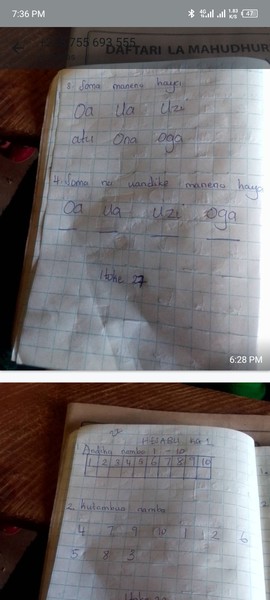 7:36 PM
755 693 555
DAFTARI LA MAHUDHUR
3. Soma maneno haya
Oa Ua Uzi
atu Ona Oga
4. Soma na uandike maneno haya
Oa Ua Uzi Oga
6:28 PM
HISABU no 1
Andika namba 1 - 10
1 2 3 4 5 6 7 8 9 10
2. Kutambua namba
4 7 9 10 1 2 6
5 8 3